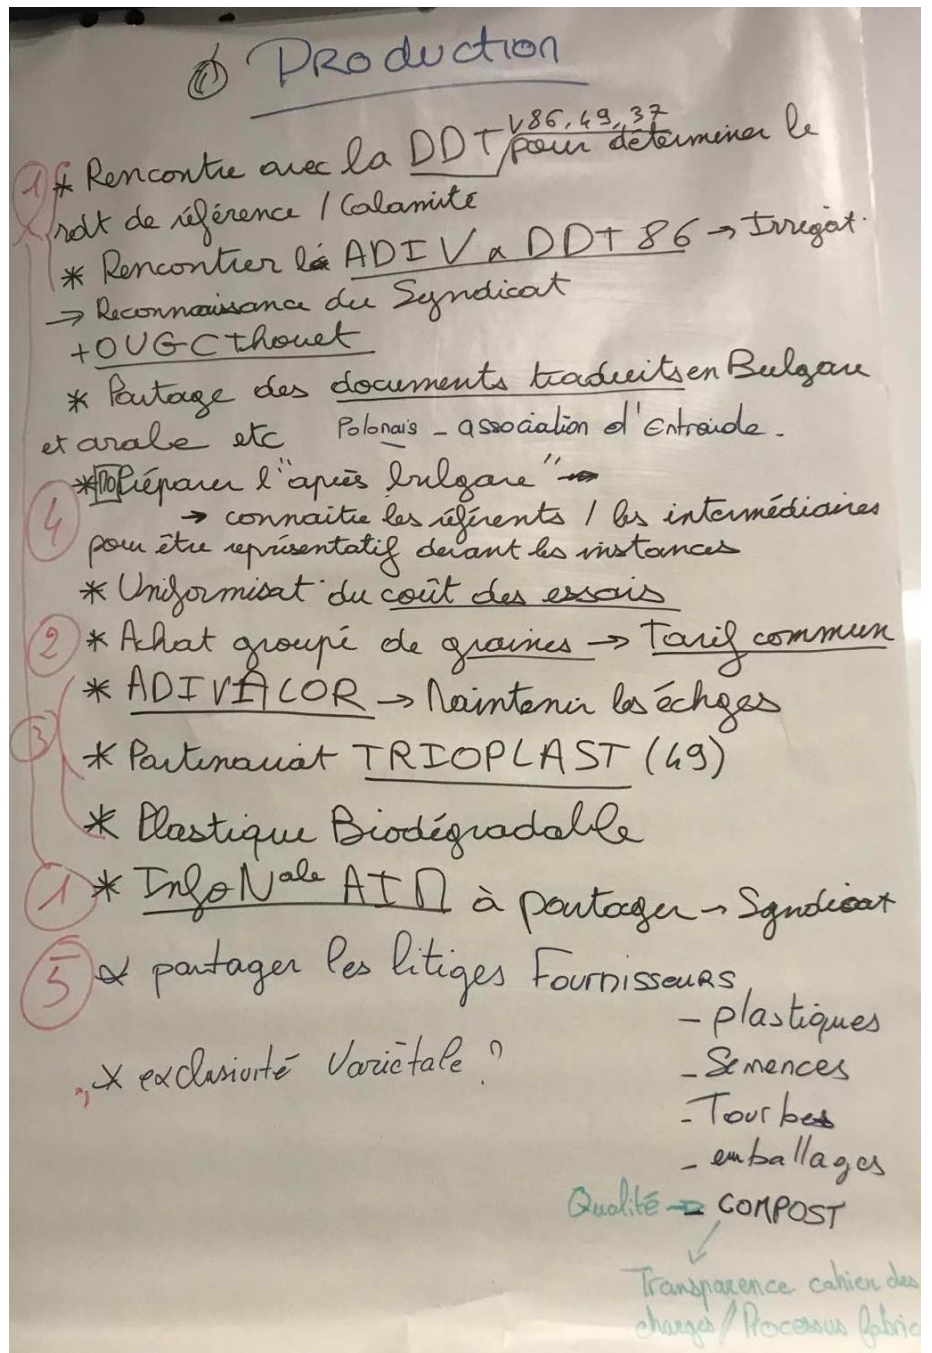 ① Production
1 * Rencontre avec la DDT V86, 49, 37 pour déterminer le
rdt de référence / Calamité
* Rencontrer la ADIV & DDT 86 → Irrigat°
→ Reconnaissance du Syndicat
+ OUGC thouet
* Partage des documents traduits en Bulgare
et arabe etc Polonais - association d'Entraide.
* Préparer l'"après bulgare"
4 → connaitre les référents / les intermédiaires
pour être représentatif devant les instances
* Uniformisat° du coût des essais
2 * Achat groupé de graines → Tarif commun
* ADIVALOR → Maintenir les échges
3 * Partenariat TRIOPLAST (49)
* Plastique Biodégradable
1 * Info Nale AIM à partager → Syndicat
5 * partager les litiges Fournisseurs
- plastiques
* exclusivité Variétale ?
- Semences
- Tourbes
- emballages
Qualité → COMPOST
Transparence cahier des
charges / Processus fabric